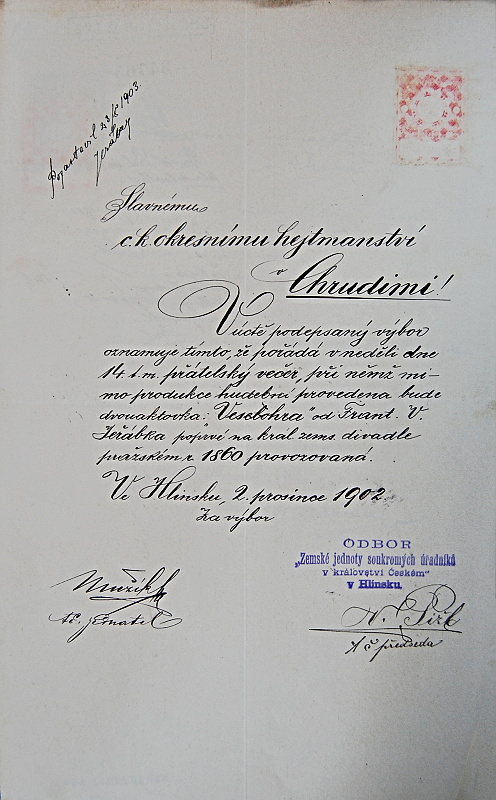 23/X 1903.
Jeřábek
Slavnému
c. k. okresnímu hejtmanství
v
Chrudimi!
V úctě podepsaný výbor
oznamuje tímto, že pořádá v neděli dne
14. t. m. přátelský večer, při němž mi-
mo produkce hudební provedena bude
dvouaktovka: "Veselohra" od Frant. V.
Jeřábka poprvé na král. zems. divadle
pražském r. 1860 provozovaná.
Ve Hlinsku, 2. prosince 1902.
Za výbor
ODBOR
„Zemské jednoty soukromých úředníků
v království Českém"
v Hlinsku.
Mužík
tč. jednatel
Pírl
t č předseda